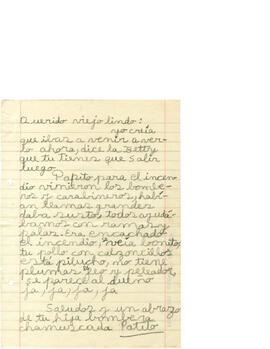 Querido viejo lindo:
yo creía
que ibas a venir a ver-
lo ahora, dice la Betty
que tu tienes que salir
luego.
Papito, para el incen-
dio vinieron los bombe-
ros y carabineros, habí-
an llamas grandes
daba susto, todos ayudá-
bamos con ramas y
palas era encachado
el incendio, veía bonito,
tu pollo con calzoncillos
está pilucho, no tiene
plumas, feo y peleador,
se parece al dueño
ja, ja, ja, ja
Saludos y un abrazo
de tu hija bombera
chamuscada Patito